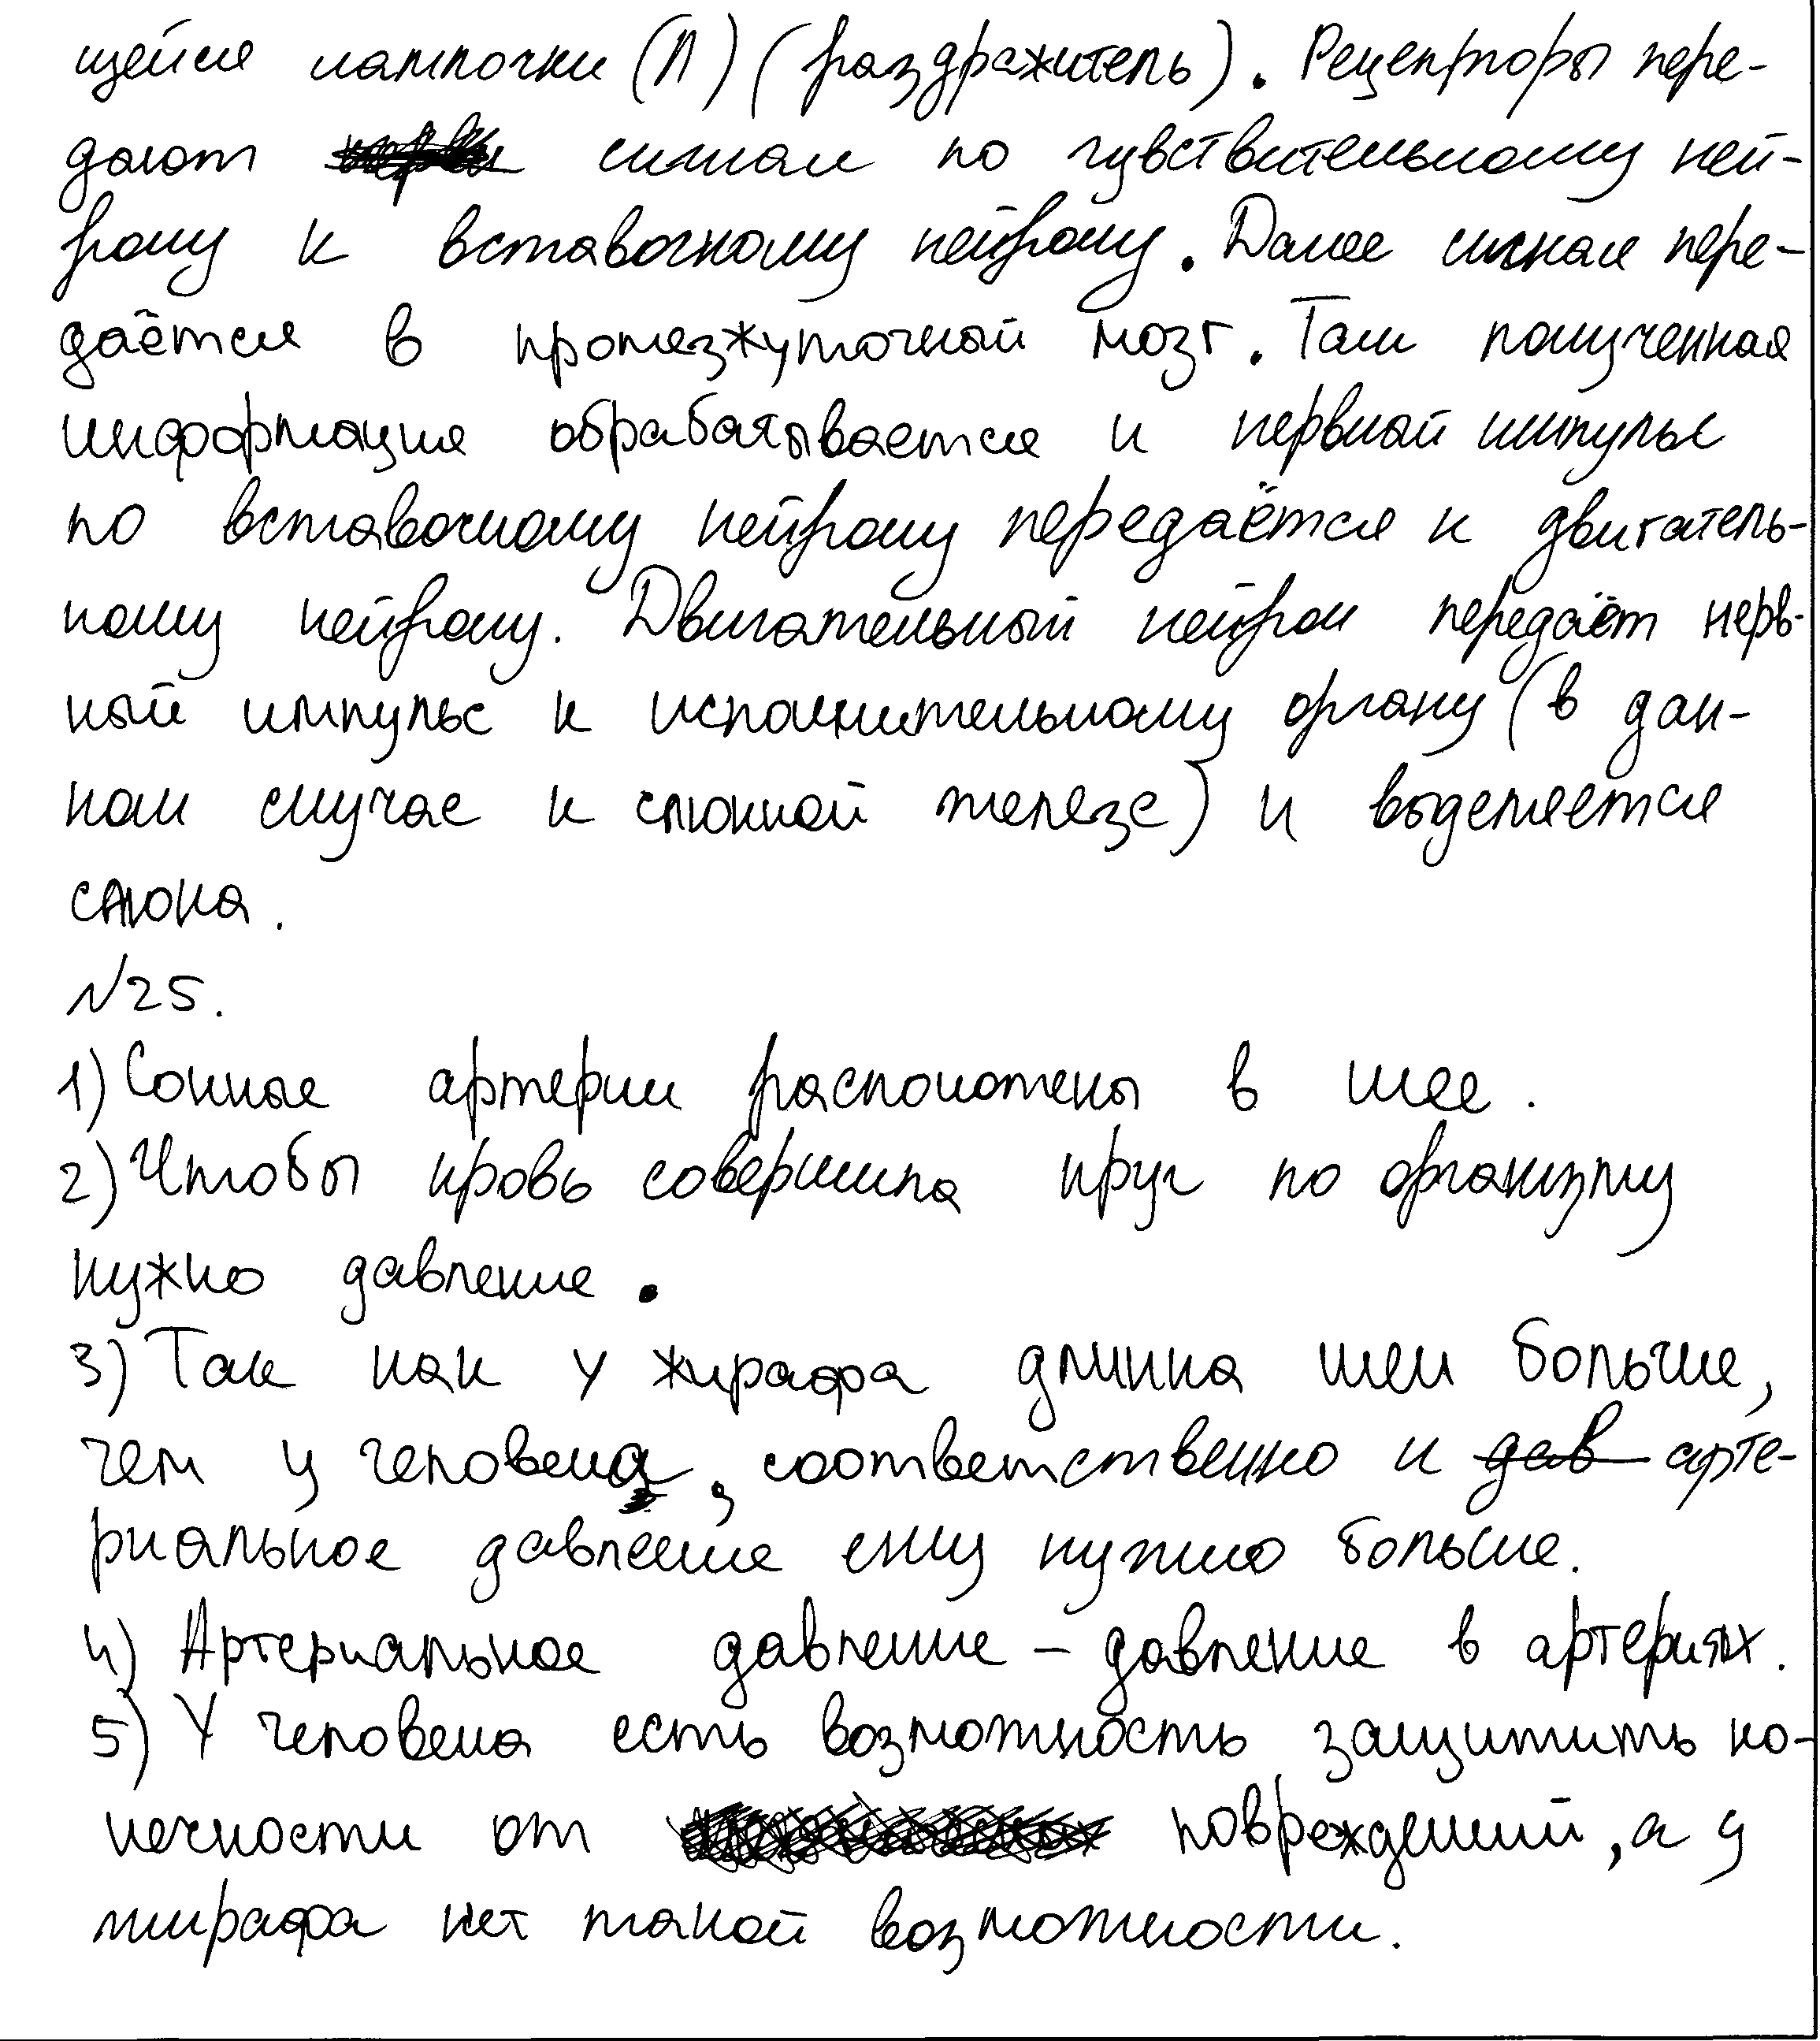 щейся лампочки (Л) (раздражитель). Рецепторы пере-
дают сигнал по чувствительному ней-
рону к вставочному нейрону. Далее сигнал пере-
даётся в промезжуточный мозг. Там полученная
информация обрабатывается и нервный импульс
по вставочному нейрону передаётся к двигатель-
ному нейрону. Двигательный нейрон передаёт нерв-
ный импульс к исполнительному органу (в дан-
ном случае к слюнной железе) и выделяется
слюна.
№25.
1) Сонные артерии расположены в шее.
2) Чтобы кровь совершила круг по организму
нужно давление.
3) Так как у жирафа длинна шеи больше,
чем у человека, соответственно и дав арте-
риальное давление ему нужно больше.
4) Артериальное давление – давление в артериях.
5) У человека есть возможность защитить ко-
нечности от повреждений, а у
жирафа нет такой возможности.